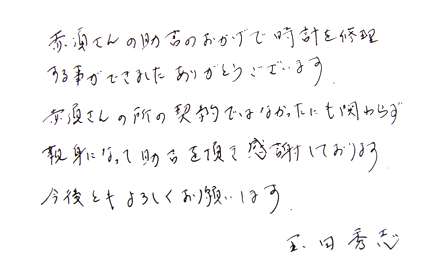 赤須さんの助言のおかげで時計を修理
する事ができました ありがとうございます.
赤須さんの所の契約ではなかったにも関わらず
親身になって助言を頂き感謝しております
今後ともよろしくお願いします.
玉田秀志